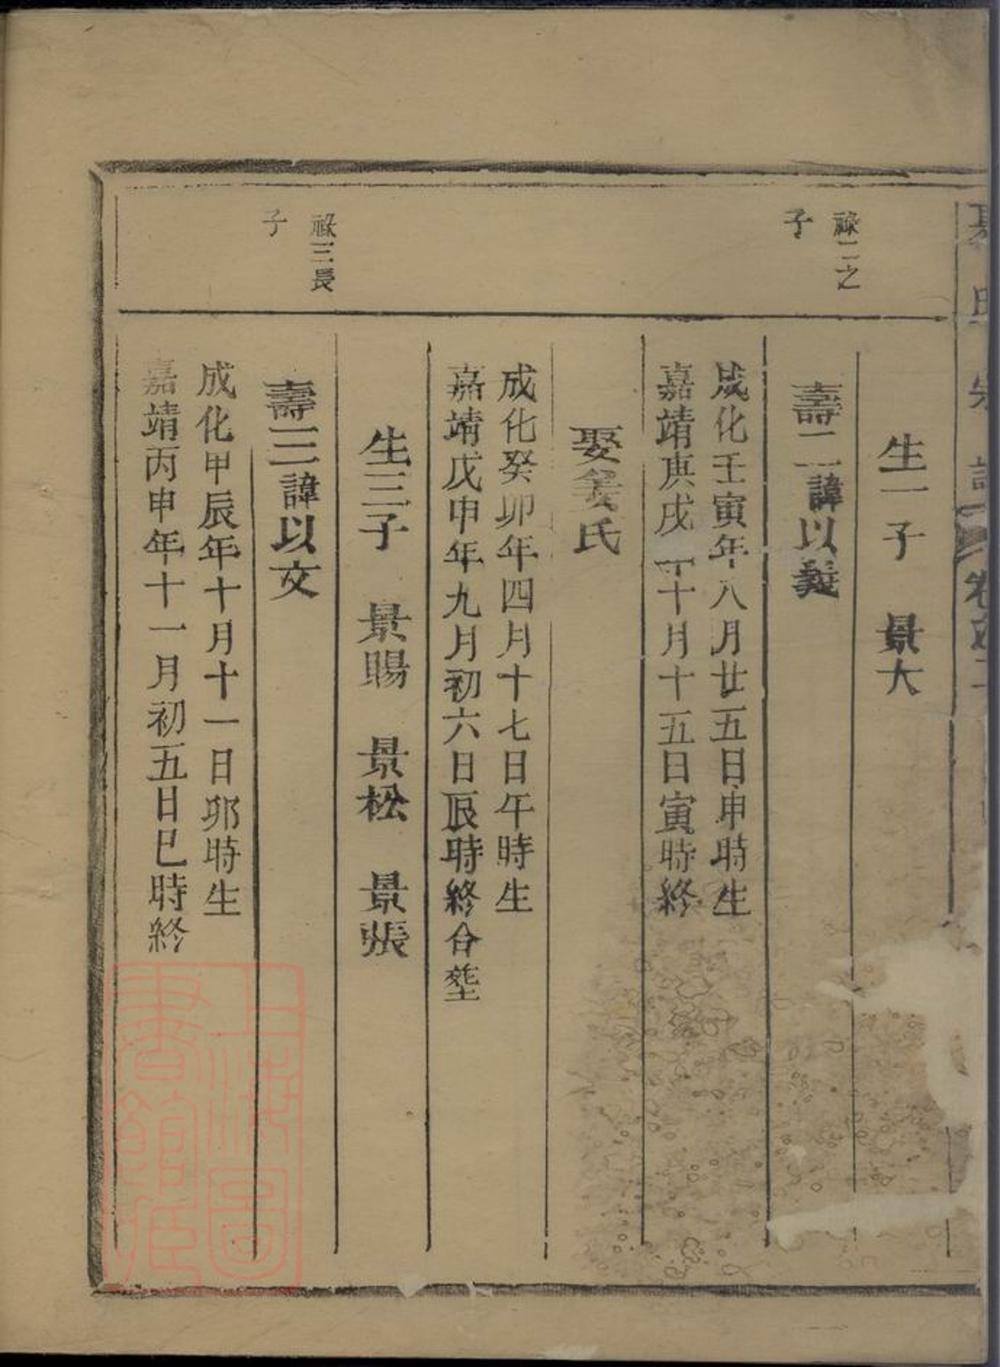 生一子 景大
祿二之
子
壽二諱以義
成化壬寅年八月廿五日申時生
嘉靖庚戌年十月十五日寅時終
娶姜氏
成化癸卯年四月十七日午時生
嘉靖戊申年九月初六日辰時終合塟
生三子 景賜 景松 景張
祿三長
子
壽三諱以文
成化甲辰年十月十一日卯時生
嘉靖丙申年十一月初五日巳時終
上海圖
書館藏